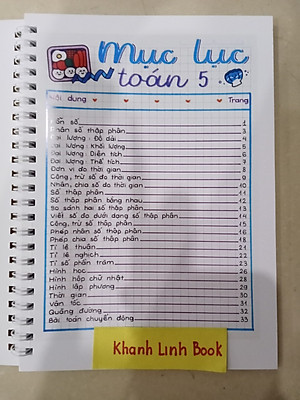 Mục lục
toán 5
Nội dung Trang
Hỗn số 1
Phân số thập phân 3
Đại lượng: Độ dài 4
Đại lượng: Khối lượng 5
Đại lượng: Diện tích 6
Đại lượng: Thể tích 7
Đơn vị đo thời gian 8
Cộng, trừ số đo thời gian 9
Nhân, chia số đo thời gian 10
Số thập phân 11
Số thập phân bằng nhau 12
So sánh hai số thập phân 13
Viết số đo dưới dạng số thập phân 14
Cộng, trừ số thập phân 15
Phép nhân số thập phân 16
Phép chia số thập phân 18
Tỉ lệ thuận 21
Tỉ lệ nghịch 22
Tỉ số phần trăm 23
Hình học 26
Hình hộp chữ nhật 28
Hình lập phương 29
Thời gian 30
Vận tốc 31
Quãng đường 32
Bài toán chuyển động 33
Khánh Linh Book